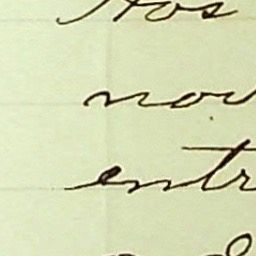 Hos
now
entr